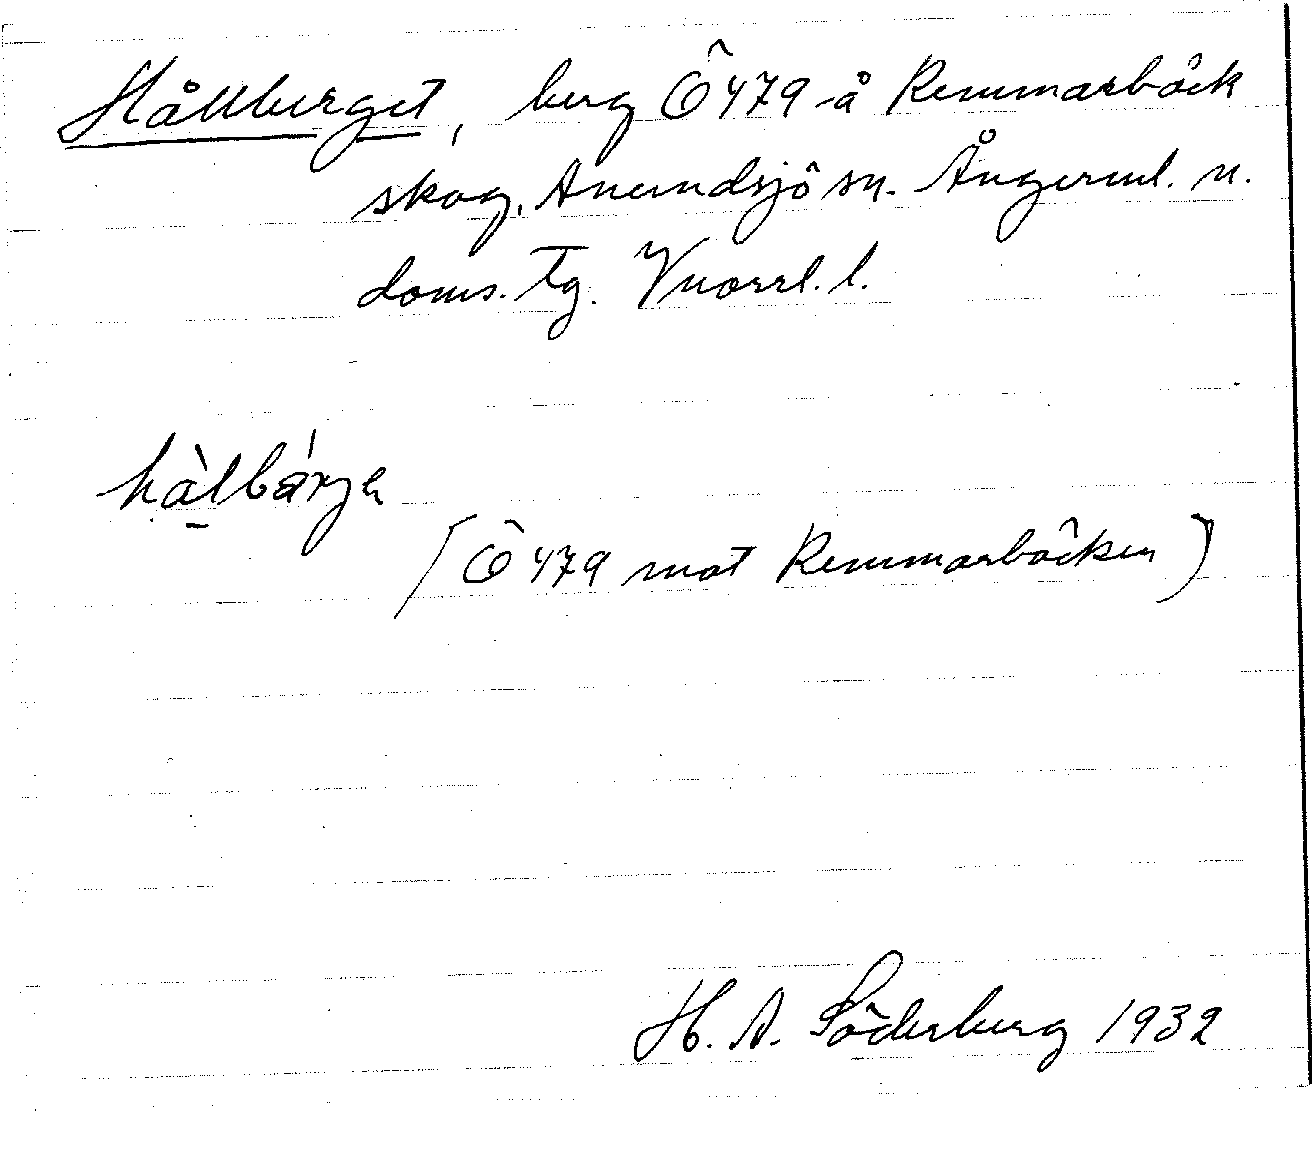 Hållberget, berg Ö 479 å Remmarbäck
skog, Anundsjö sn. Ångerml. n.
doms. tg. Vnorrl. l.
hàlbárjə
(Ö 479 mot Remmarbäcken)
H. A. Söderberg 1932